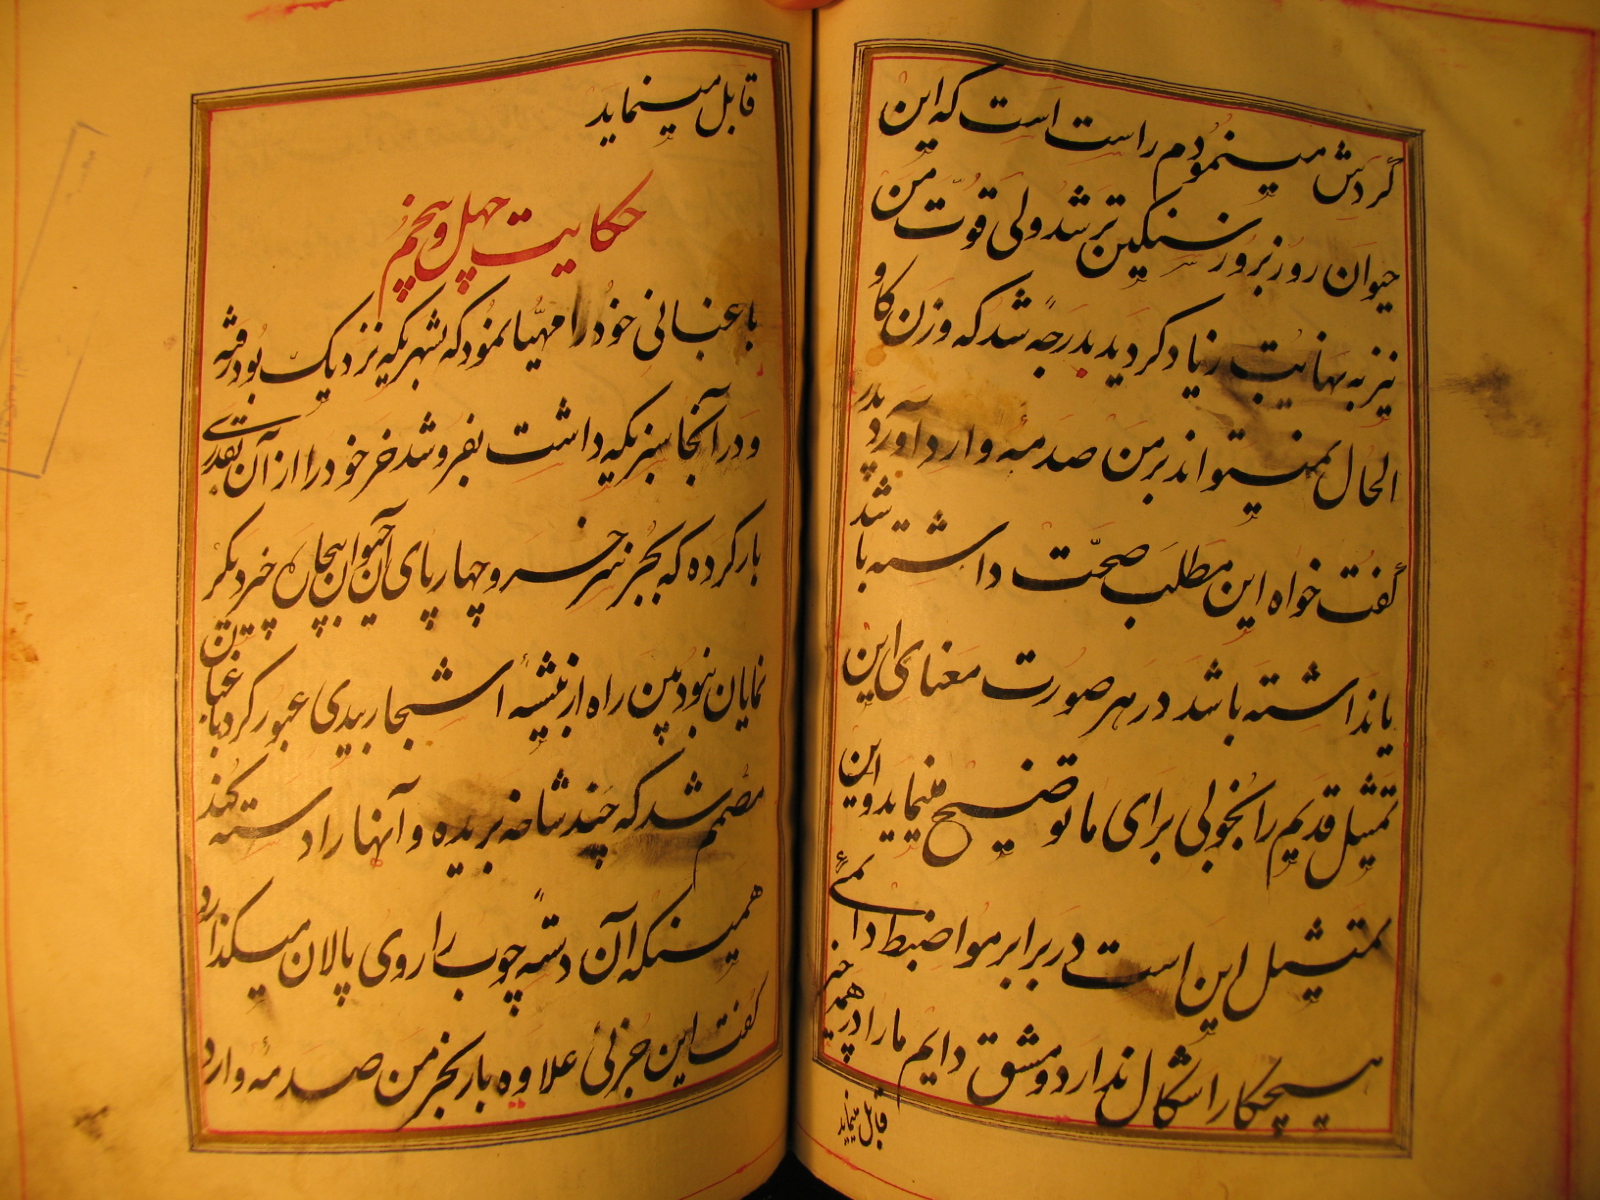 گردش مینمودم راست است که این
حیوان روز بروز سنگین تر شد ولی قوّت من
نیز به نهایت زیاد کردید بدرجهٔ شد که وزن کاو
الحال نمیتواند بر من صدمهٔ وارد آورد پدر
گفت خواه این مطلب صحّت داشته باشد
یا نداشته باشد در هر صورت معنای این
تمثیل قدیم را بخوبی برای ما توضیح مینماید و این
تمثیل این است در برابر مواضبط دائمی
هیچکار اشکال ندارد و مشق دایم ما را در همه چیز
قابل مینماید
قابل مینماید
حکایت چهل و پنجم
باغبانی خود را مهیّا نمود که بشهریکه نزدیک بود رفته
و در آنجا سبزیکه داشت بفروشد خر خود را از آن بقدری
بار کرده که بجز سر خر و چهار پای آن حیوان بیجان چیز دیگر
نمایان نبود پس راه از بیشهٔ اشجار بیدی عبور کرد باغبان
مصّمم شد که چند شاخه بریده و آنها را دسته کند
همینکه آن دستهٔ چوب را روی پالان میکذارد
گفت این جزئی علاوه بار بخر من صدمهٔ وارد